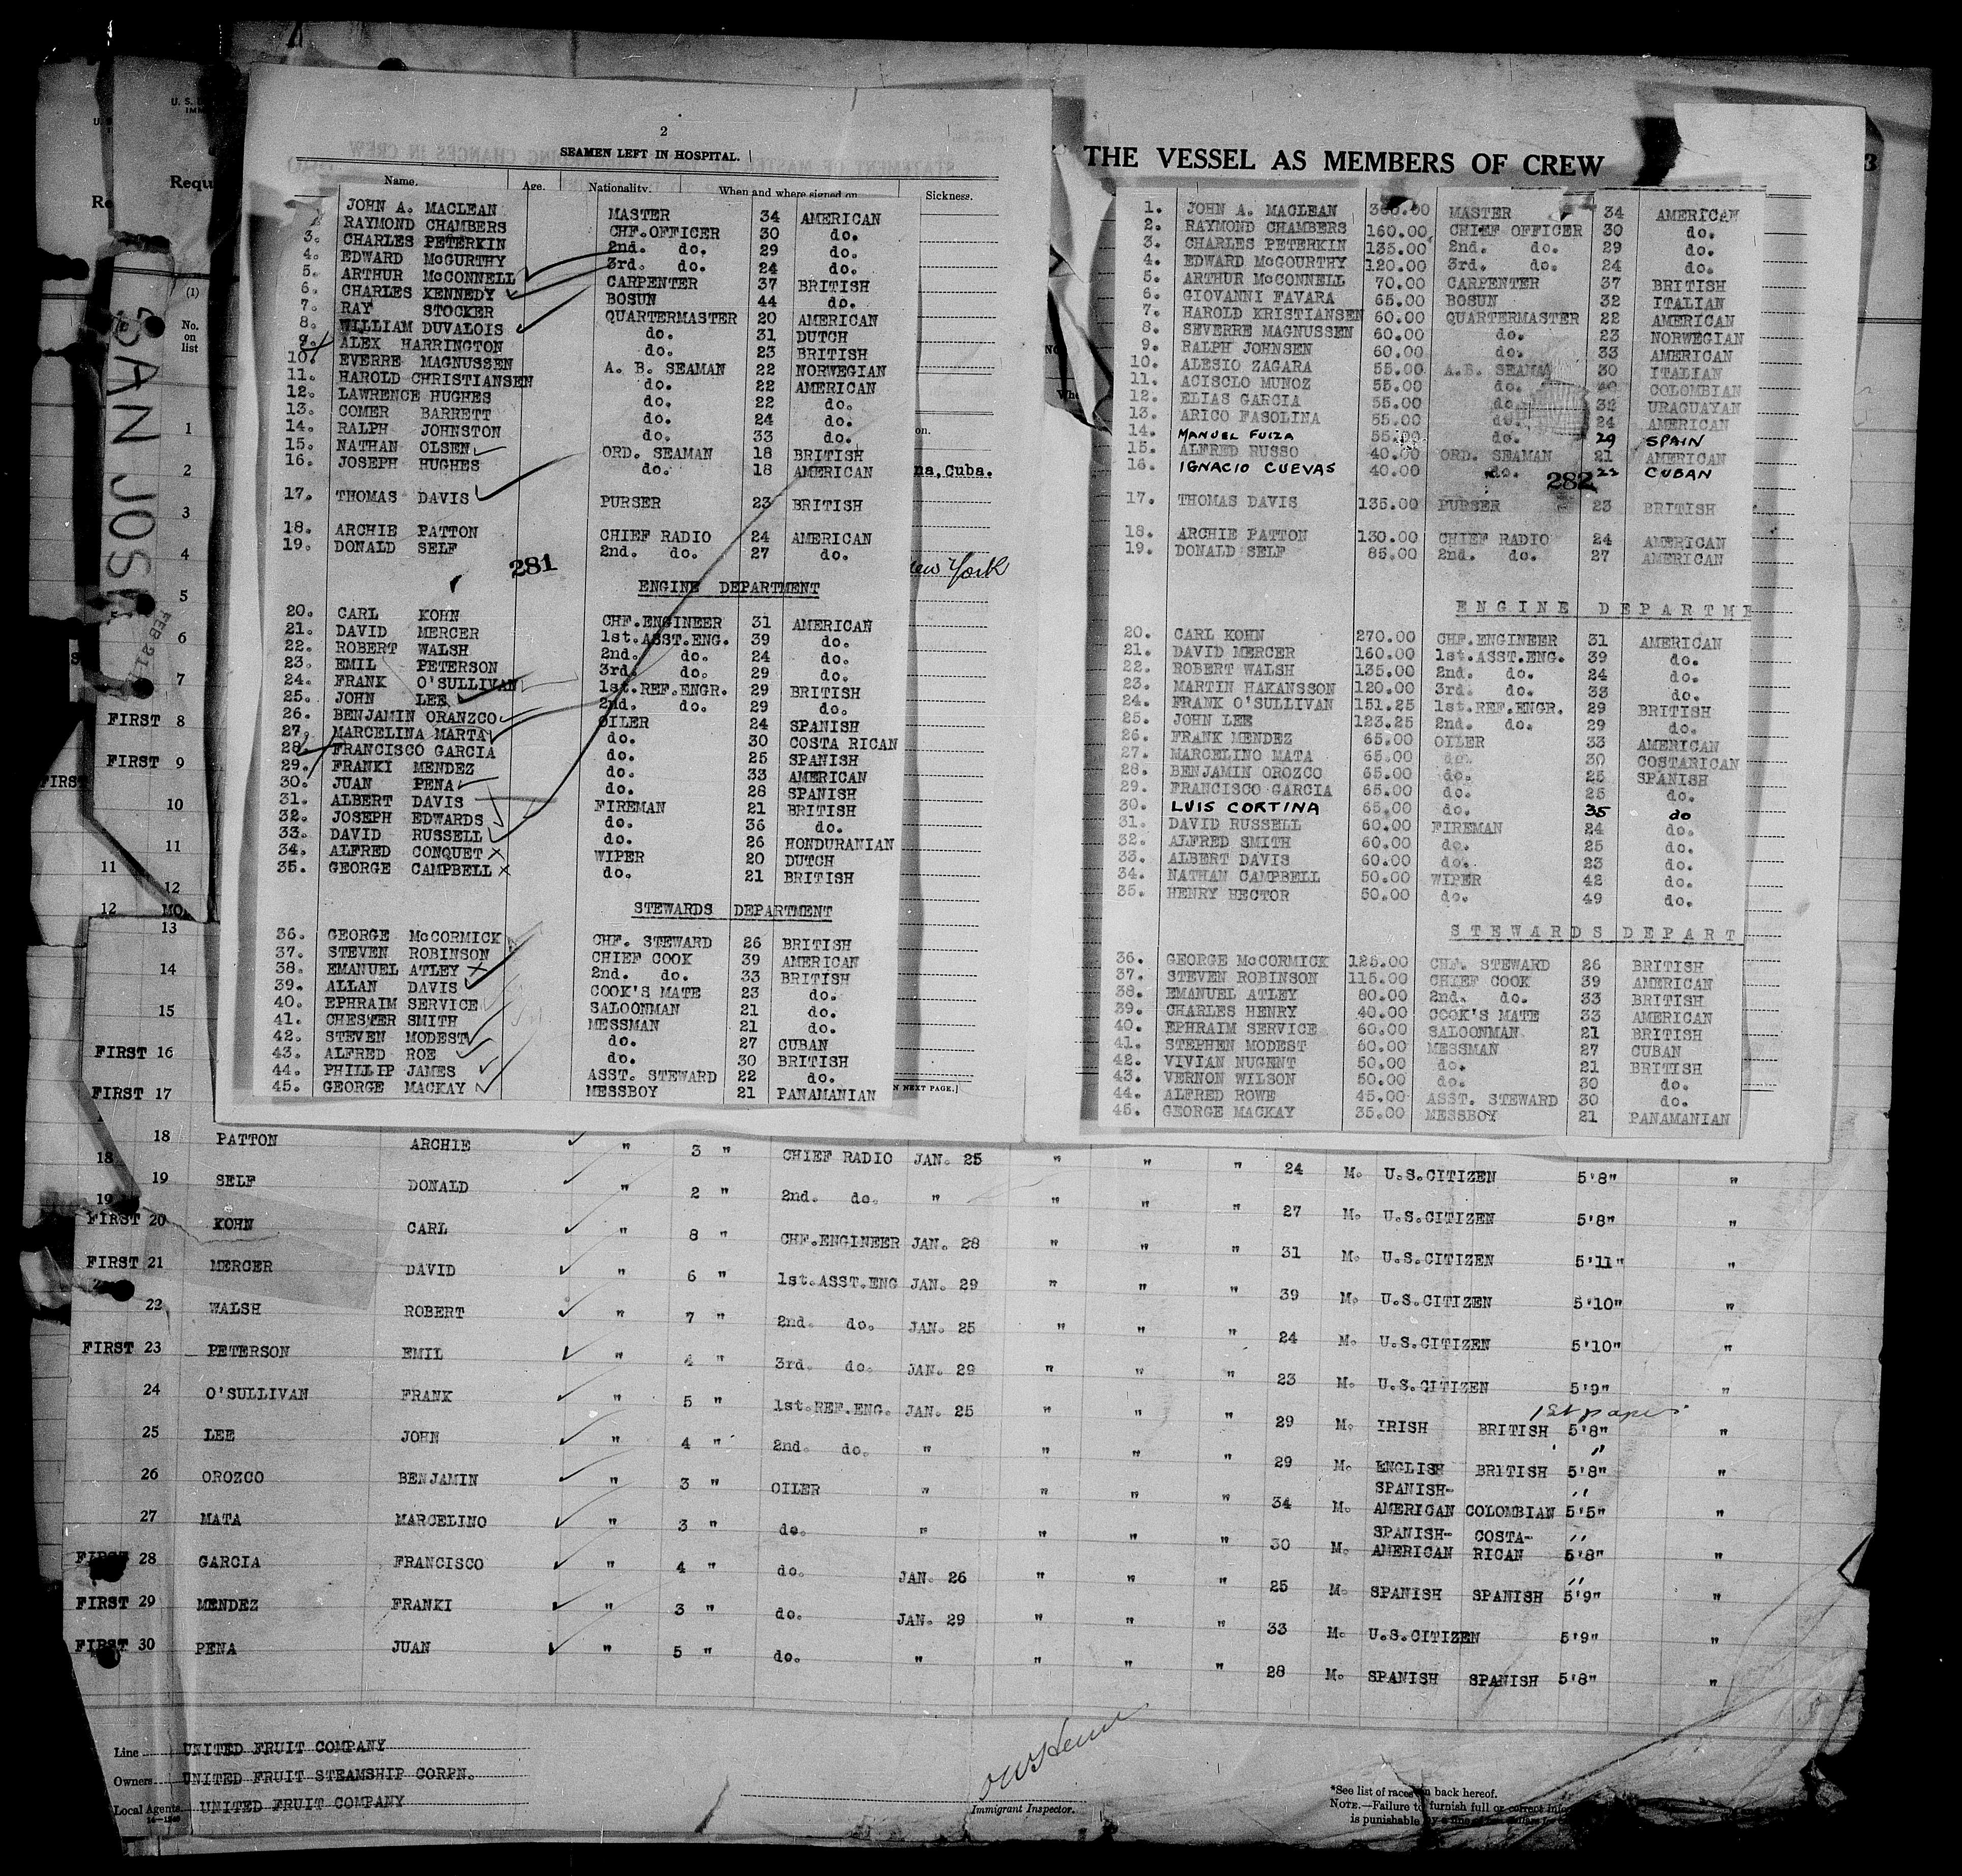 2
SEAMEN LEFT IN HOSPITAL.
Name. Age. Nationality. When and where signed on Sickness.
JOHN A. MACLEAN MASTER 34 AMERICAN
RAYMOND CHAMBERS CHF.OFFICER 30 do.
3. CHARLES PETERKIN 2nd. do. 29 do.
4. EDWARD McGURTHY 3rd. do. 24 do.
5. ARTHUR McCONNELL CARPENTER 37 BRITISH
6. CHARLES KENNEDY BOSUN 44 do.
7. RAY STOCKER QUARTERMASTER 20 AMERICAN
8. WILLIAM DUVALOIS do. 31 DUTCH
9. ALEX HARRINGTON do. 23 BRITISH
10. EVERRE MAGNUSSEN A. B. SEAMAN 22 NORWEGIAN
11. HAROLD CHRISTIANSEN do. 22 AMERICAN
12. LAWRENCE HUGHES do. 22 do.
13. COMER BARRETT do. 24 do.
14. RALPH JOHNSTON do. 33 do.
15. NATHAN OLSEN ORD. SEAMAN 18 BRITISH
16. JOSEPH HUGHES do. 18 AMERICAN
na, Cuba.
17. THOMAS DAVIS PURSER 23 BRITISH
18. ARCHIE PATTON CHIEF RADIO 24 AMERICAN
19. DONALD SELF 2nd. do. 27 do.
281
ew York
ENGINE DEPARTMENT
20. CARL KOHN CHF.ENGINEER 31 AMERICAN
21. DAVID MERCER 1st.ASST.ENG. 39 do.
22. ROBERT WALSH 2nd. do. 24 do.
23. EMIL PETERSON 3rd. do. 29 do.
24. FRANK O'SULLIVAN 1st.REF.ENGR. 29 BRITISH
25. JOHN LEE 2nd. do. 29 do.
26. BENJAMIN ORANZCO OILER 24 SPANISH
27. MARCELINA MARTA do. 30 COSTA RICAN
28. FRANCISCO GARCIA do. 25 SPANISH
29. FRANKI MENDEZ do. 33 AMERICAN
30. JUAN PENA do. 28 SPANISH
31. ALBERT DAVIS FIREMAN 21 BRITISH
32. JOSEPH EDWARDS do. 36 do.
33. DAVID RUSSELL do. 26 HONDURANIAN
34. ALFRED CONQUET WIPER 20 DUTCH
35. GEORGE CAMPBELL do. 21 BRITISH
STEWARDS DEPARTMENT
36. GEORGE McCORMICK CHF. STEWARD 26 BRITISH
37. STEVEN ROBINSON CHIEF COOK 39 AMERICAN
38. EMANUEL ATLEY 2nd. do. 33 BRITISH
39. ALLAN DAVIS COOK'S MATE 23 do.
40. EPHRAIM SERVICE SALOONMAN 21 do.
41. CHESTER SMITH MESSMAN 21 do.
42. STEVEN MODEST do. 27 CUBAN
43. ALFRED ROE do. 30 BRITISH
44. PHILLIP JAMES ASST. STEWARD 22 do.
45. GEORGE MACKAY MESSBOY 21 PANAMANIAN
N NEXT PAGE.]
THE VESSEL AS MEMBERS OF CREW
3
1. JOHN A. MACLEAN MASTER 34 AMERICAN
2. RAYMOND CHAMBERS 160.00 CHIEF OFFICER 30 do.
3. CHARLES PETERKIN 135.00 2nd. do. 29 do.
4. EDWARD McGOURTHY 120.00 3rd. do. 24 do.
5. ARTHUR McCONNELL 70.00 CARPENTER 37 BRITISH
6. GIOVANNI FAVARA 65.00 BOSUN 32 ITALIAN
7. HAROLD KRISTIANSEN 60.00 QUARTERMASTER 22 AMERICAN
8. SEVERRE MAGNUSSEN 60.00 do. 23 NORWEGIAN
9. RALPH JOHNSEN 60.00 do. 33 AMERICAN
10. ALESIO ZAGARA 55.00 A.B. SEAMA 30 ITALIAN
11. ACISCLO MUNOZ 55.00 do. COLOMBIAN
12. ELIAS GARCIA 55.00 do. 32 URAGUAYAN
13. ARICO FASOLINA 55.00 do. 24 AMERICAN
14. MANUEL FUIZA 55.00 do. 29 SPAIN
15. ALFRED RUSSO 40.00 ORD. SEAMAN 21 AMERICAN
16. IGNACIO CUEVAS 40.00 do. 22 CUBAN
282
17. THOMAS DAVIS 135.00 PURSER 23 BRITISH
18. ARCHIE PATTON 130.00 CHIEF RADIO 24 AMERICAN
19. DONALD SELF 85.00 2nd. do. 27 AMERICAN
ENGINE DEPARTME
20. CARL KOHN 270.00 CHF.ENGINEER 31 AMERICAN
21. DAVID MERCER 160.00 1st.ASST.ENG. 39 do.
22. ROBERT WALSH 135.00 2nd. do. 24 do.
23. MARTIN HAKANSSON 120.00 3rd. do. 33 do.
24. FRANK O'SULLIVAN 151.25 1st.REF.ENGR. 29 BRITISH
25. JOHN LEE 123.25 2nd. do. 29 do.
26. FRANK MENDEZ 65.00 OILER 33 AMERICAN
27. MARCELINO MATA 65.00 do. 30 COSTARICAN
28. BENJAMIN OROZCO 65.00 do. 25 SPANISH
29. FRANCISCO GARCIA 65.00 do. 25 do.
30. LUIS CORTINA 65.00 do. 35 do
31. DAVID RUSSELL 60.00 FIREMAN 24 do.
32. ALFRED SMITH 60.00 do. 25 do.
33. ALBERT DAVIS 60.00 do. 23 do.
34. NATHAN CAMPBELL 50.00 WIPER 42 do.
35. HENRY HECTOR 50.00 do. 49 do.
STEWARDS DEPART
36. GEORGE McCORMICK 125.00 CHF. STEWARD 26 BRITISH
37. STEVEN ROBINSON 115.00 CHIEF COOK 39 AMERICAN
38. EMANUEL ATLEY 80.00 2nd. do. 33 BRITISH
39. CHARLES HENRY 40.00 COOK'S MATE 33 AMERICAN
40. EPHRAIM SERVICE 60.00 SALOONMAN 21 BRITISH
41. STEPHEN MODEST 60.00 MESSMAN 27 CUBAN
42. VIVIAN NUGENT 50.00 do. 21 BRITISH
43. VERNON WILSON 50.00 do. 30 do.
44. ALFRED ROWE 45.00 ASST. STEWARD 30 do.
45. GEORGE MACKAY 35.00 MESSBOY 21 PANAMANIAN
Requ
(1)
No. on list
SAN JOSE
FEB 21
1
2
3
4
5
6
7
FIRST 8
FIRST 9
FIRST
10
11
11
12
12
13
14
15
FIRST 16
FIRST 17
18 PATTON ARCHIE " 3 " CHIEF RADIO JAN. 25 " " " 24 M. U.S.CITIZEN 5'8" "
18
19 SELF DONALD " 2 " 2nd. do. " " " " 27 M. U.S.CITIZEN 5'8" "
19
FIRST 20 KOHN CARL " 8 " CHF.ENGINEER JAN. 28 " " " 31 M. U.S.CITIZEN 5'11" "
FIRST 21 MERCER DAVID " 6 " 1st.ASST.ENG JAN. 29 " " " 39 M. U.S.CITIZEN 5'10" "
22 WALSH ROBERT " 7 " 2nd. do. JAN. 25 " " " 24 M. U.S.CITIZEN 5'10" "
FIRST 23 PETERSON EMIL " 4 " 3rd. do. JAN. 29 " " " 23 M. U.S.CITIZEN 5'9" "
1st papers
24 O'SULLIVAN FRANK " 5 " 1st.REF.ENG. JAN. 25 " " " 29 M. IRISH BRITISH 5'8" "
25 LEE JOHN " 4 " 2nd. do. " " " " 29 M. ENGLISH BRITISH 5'8" "
26 OROZCO BENJAMIN " 3 " OILER " " " " 34 M. SPANISH-AMERICAN COLOMBIAN 5'5" "
27 MATA MARCELINO " 3 " do. " " " " 30 M. SPANISH-AMERICAN COSTA-RICAN 5'8" "
FIRST 28 GARCIA FRANCISCO " 4 " do. JAN. 26 " " " 25 M. SPANISH SPANISH 5'9" "
FIRST 29 MENDEZ FRANKI " 3 " do. JAN. 29 " " " 33 M. U.S.CITIZEN 5'9" "
FIRST 30 PENA JUAN " 5 " do. " " " " 28 M. SPANISH SPANISH 5'8" "
Line UNITED FRUIT COMPANY
Owners UNITED FRUIT STEAMSHIP CORPN.
Local Agents UNITED FRUIT COMPANY
14—1240
Immigrant Inspector.
*See list of races on back hereof.
NOTE.—Failure to furnish full or correct info
is punishable by a